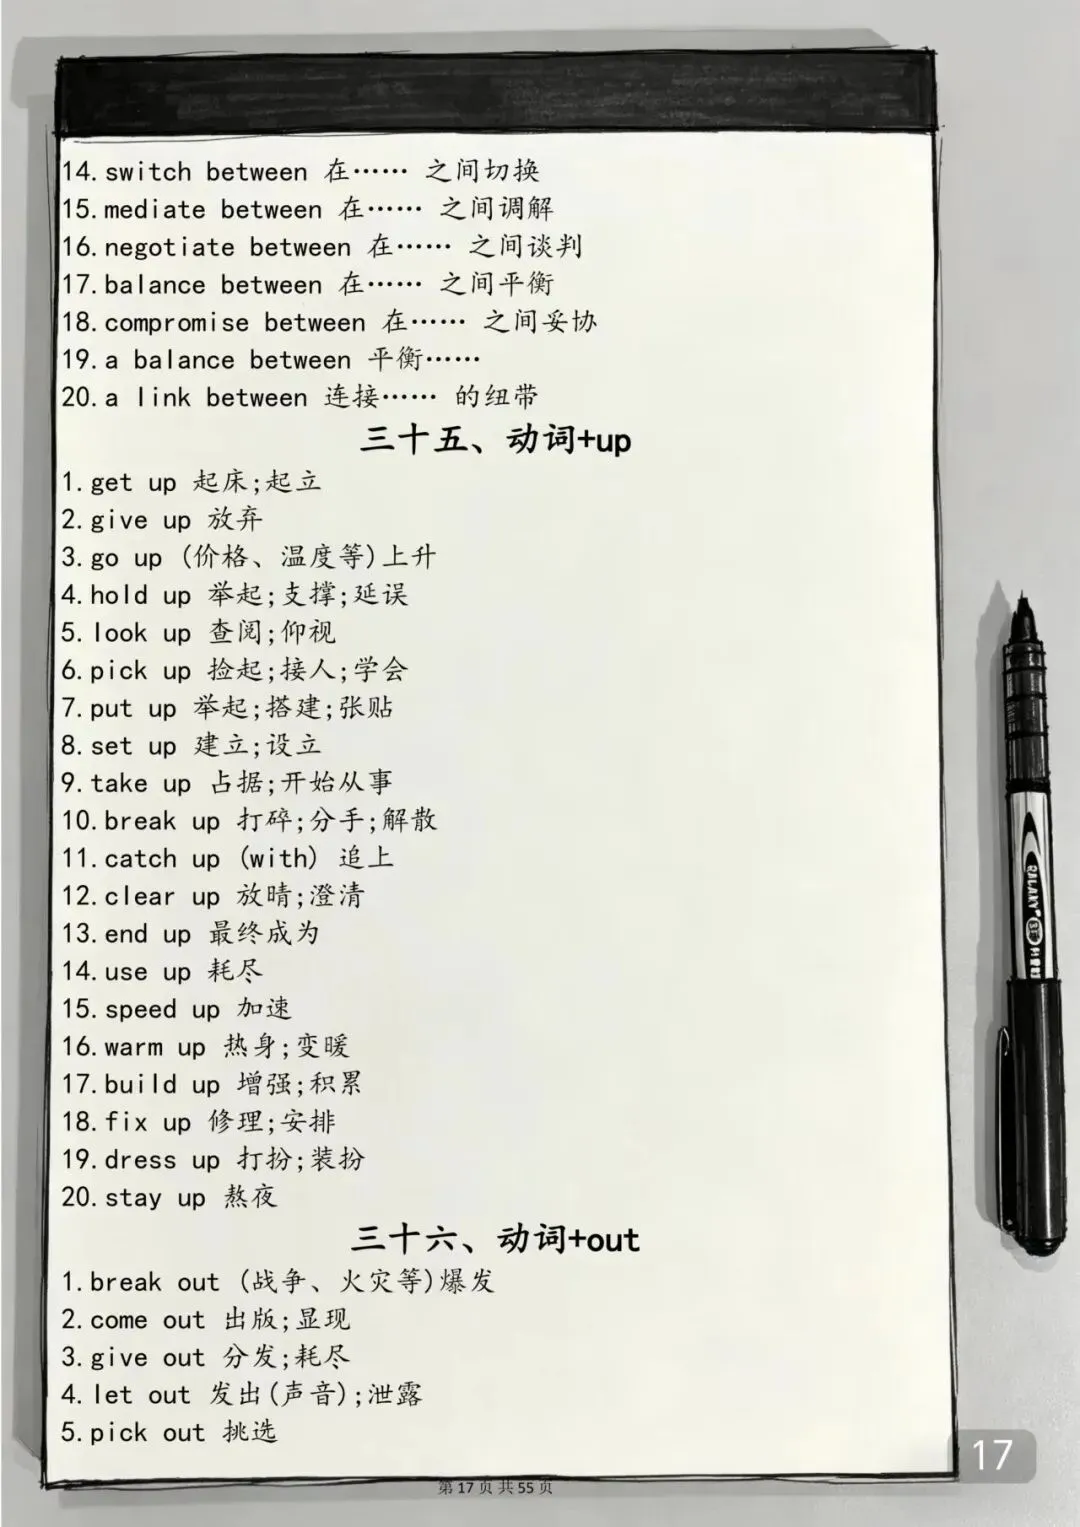 14.switch between 在…… 之间切换
15.mediate between 在…… 之间调解
16.negotiate between 在…… 之间谈判
17.balance between 在…… 之间平衡
18.compromise between 在…… 之间妥协
19.a balance between 平衡……
20.a link between 连接…… 的纽带
三十五、动词+up
1.get up 起床;起立
2.give up 放弃
3.go up (价格、温度等)上升
4.hold up 举起;支撑;延误
5.look up 查阅;仰视
6.pick up 捡起;接人;学会
7.put up 举起;搭建;张贴
8.set up 建立;设立
9.take up 占据;开始从事
10.break up 打碎;分手;解散
11.catch up (with) 追上
12.clear up 放晴;澄清
13.end up 最终成为
14.use up 耗尽
15.speed up 加速
16.warm up 热身;变暖
17.build up 增强;积累
18.fix up 修理;安排
19.dress up 打扮;装扮
20.stay up 熬夜
三十六、动词+out
1.break out (战争、火灾等)爆发
2.come out 出版;显现
3.give out 分发;耗尽
4.let out 发出(声音);泄露
5.pick out 挑选
17
第 17 页 共 55 页